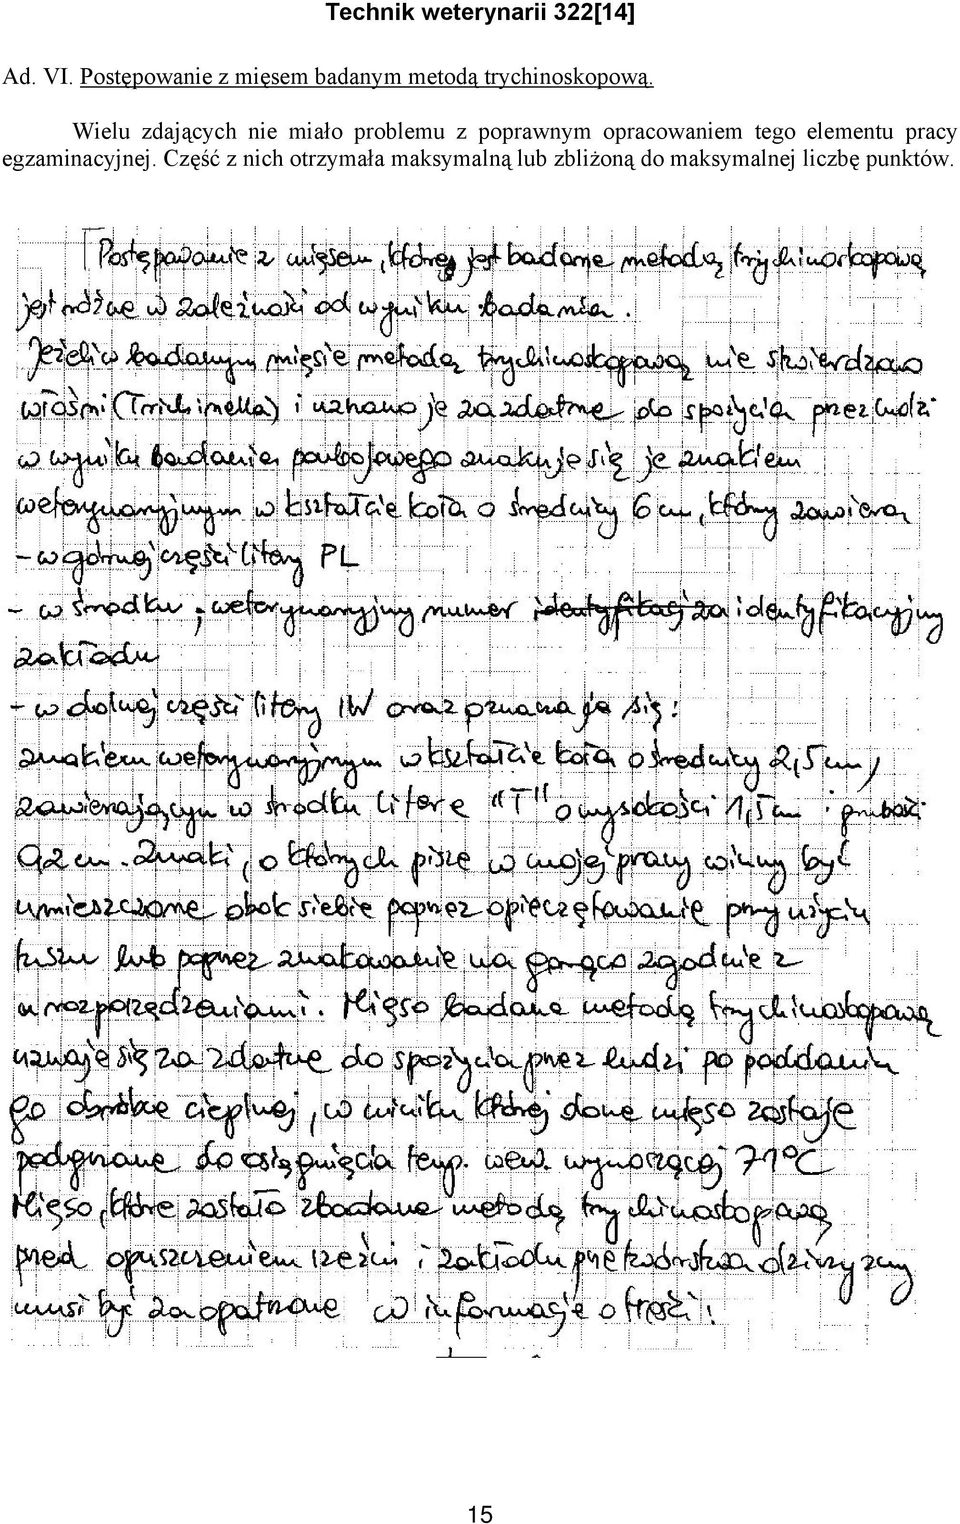 Technik weterynarii 322[14]
Ad. VI. Postępowanie z mięsem badanym metodą trychinoskopową.
Wielu zdających nie miało problemu z poprawnym opracowaniem tego elementu pracy
egzaminacyjnej. Część z nich otrzymała maksymalną lub zbliżoną do maksymalnej liczbę punktów.
Postępowanie z mięsem, które jest badane metodą trychinoskopową
jest różne w zależności od wyniku badania.
Jeżeli w badanym mięsie metodą trychinoskopową nie stwierdzono
włośni (Trichinella) i uznano je za zdatne do spożycia przez ludzi
w wyniku badania poubojowego znakuje się je znakiem
weterynaryjnym w kształcie koła o średnicy 6 cm, który zawiera
- w górnej części litery PL
- w środku; weterynaryjny numer identyfikacyjny
zakładu
- w dolnej części litery IW oraz oznacza je się:
znakiem weterynaryjnym w kształcie koła o średnicy 2,5 cm,
zawierającym w środku literę "T" o wysokości 1,5 cm i grubości
0,2 cm. Znaki, o których piszę w mojej pracy winny być
umieszczone obok siebie poprzez opieczętowanie przy użyciu
tuszu lub poprzez znakowanie na gorąco zgodnie z
rozporządzeniami. Mięso badane metodą trychinoskopową
uznaje się za zdatne do spożycia przez ludzi po poddaniu
go obróbce cieplnej, w winiku której dane mięso zostaje
podgrzane do osiągnięcia temp. wew. wynoszącej 71°C
Mięso, które zostało zbadane metodą trychinoskopową
przed opuszczeniem rzeźni i zakładu przetwórstwa dziczyzny
musi być zaopatrzone w informacje o treści:
15